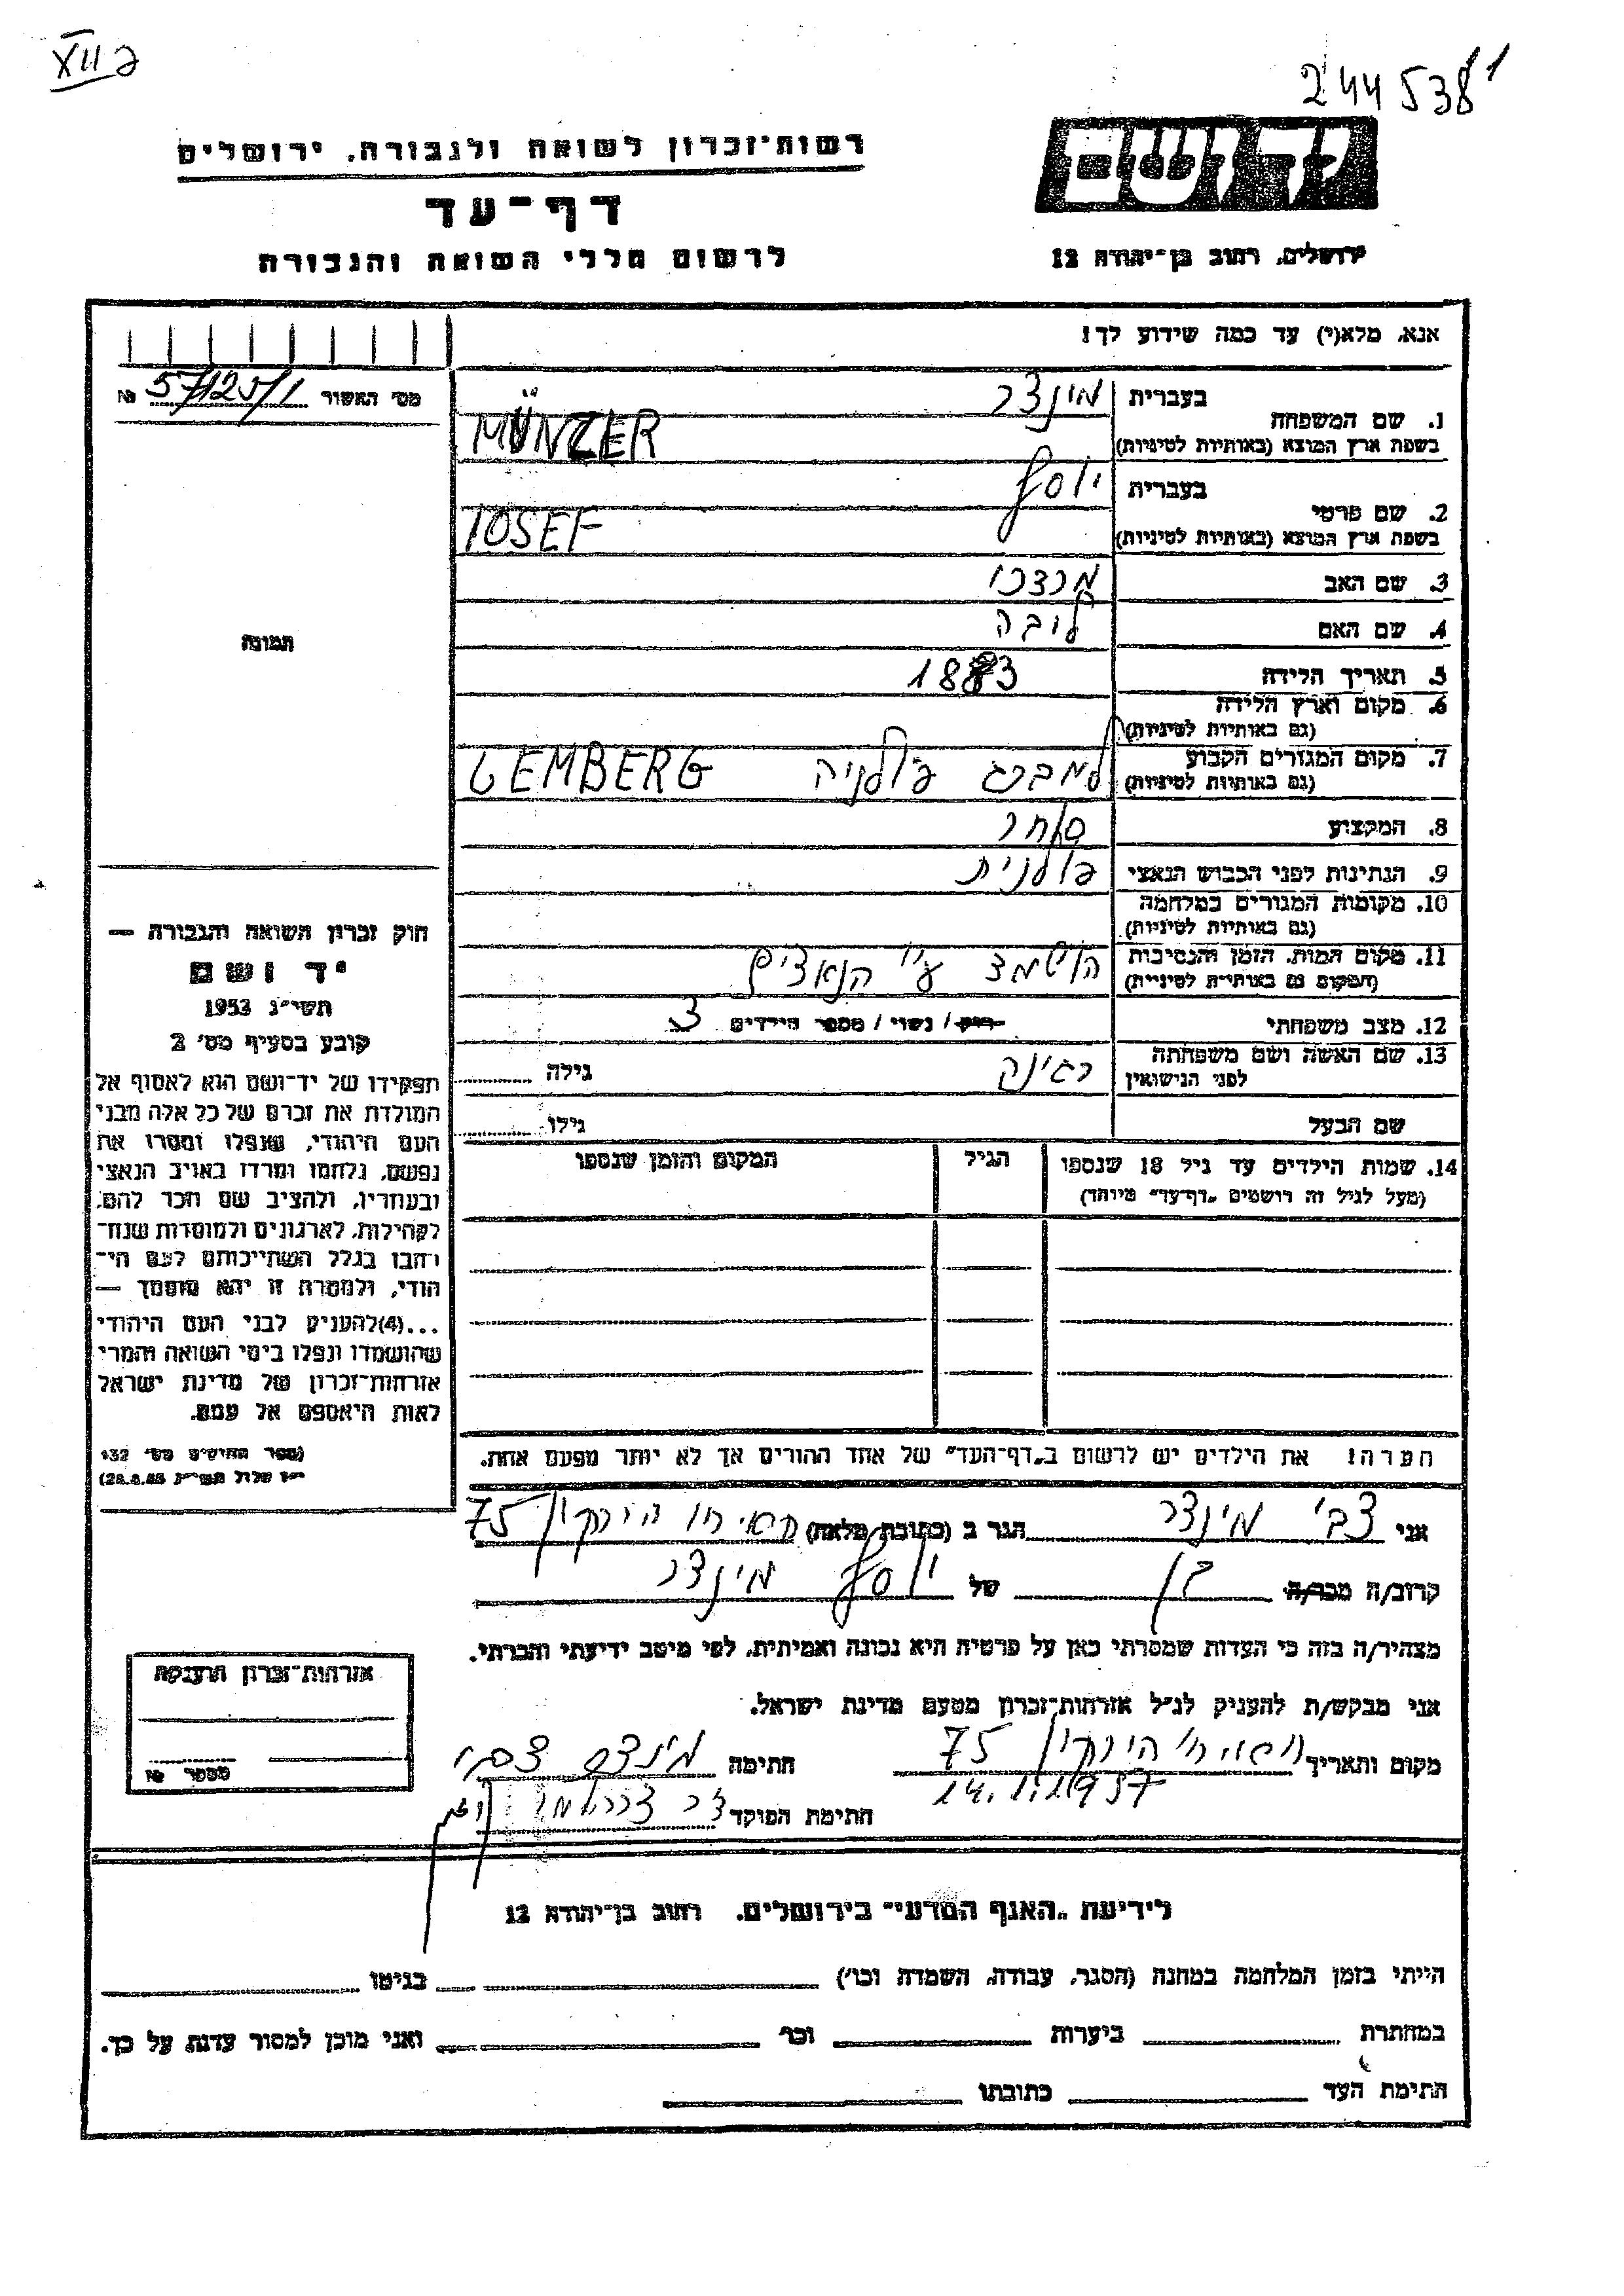 XII 2
244538 1
רשות־זכרון לשואה ולגבורה, ירושלים
יד ושם
דף־עד
ירושלים, רחוב בן־יהודה 12
לרשום חללי השואה והגבורה
אנא, מלא(י) עד כמה שידוע לך!
מס' האשור 57/125/1 №
1. שם המשפחה בעברית מינצר
בשפת ארץ המוצא (באותיות לטיניות) MÜNZER
2. שם פרטי בעברית יוסף
בשפת ארץ המוצא (באותיות לטיניות) IOSEF
3. שם האב מרדכי
4. שם האם לובה
תמונה
5. תאריך הלידה 1883
6. מקום וארץ הלידה
(גם באותיות לטיניות)
7. מקום המגורים הקבוע למברג פולניה LEMBERG
(גם באותיות לטיניות)
8. המקצוע סוחר
9. הנתינות לפני הכבוש הנאצי פולנית
10. מקומות המגורים במלחמה
(גם באותיות לטיניות)
11. מקום המות, הזמן והנסיבות הושמד ע"י הנאצים
(המקום גם באותיות לטיניות)
12. מצב משפחתי רוק / נשוי / מספר הילדים 3
13. שם האשה ושם משפחתה רגינה גילה
לפני הנישואין
שם הבעל גילו
14. שמות הילדים עד גיל 18 שנספו הגיל המקום והזמן שנספו
(מעל לגיל זה רושמים „דף־עד” מיוחד)
חוק זכרון השואה והגבורה —
יד ושם
תשי"ג 1953
קובע בסעיף מס' 2
תפקידו של יד־ושם הוא לאסוף אל
המולדת את זכרם של כל אלה מבני
העם היהודי, שנפלו ומסרו את
נפשם, נלחמו ומרדו באויב הנאצי
ובעוזריו, ולהציב שם וזכר להם,
לקהילות, לארגונים ולמוסדות שנח־
רבו בגלל השתייכותם לעם הי־
הודי, ולמטרה זו יהא מוסמך —
...(4) להעניק לבני העם היהודי
שהושמדו ונפלו בימי השואה והמרי
אזרחות־זכרון של מדינת ישראל
לאות היאספם אל עמם.
(ספר החוקים מס' 132
י"ז אלול תשי"ג 28.8.53)
הערה! את הילדים יש לרשום ב„דף־העד” של אחד ההורים אך לא יותר מפעם אחת.
אני צבי מינצר הגר ב (כתובת מלאה) הירקון 75
קרוב/ה מכר/ה בן של יוסף מינצר
מצהיר/ה בזה כי העדות שמסרתי כאן על פרטיה היא נכונה ואמיתית, לפי מיטב ידיעתי והכרתי.
אני מבקש/ת להעניק לנ"ל אזרחות־זכרון מטעם מדינת ישראל.
אזרחות־זכרון הוענקה
מספר №
מקום ותאריך הירקון 75 חתימה מינצר צבי
14.1.1957
חתימת הפוקד
לידיעת „האגף המדעי” בירושלים, רחוב בן־יהודה 12
הייתי בזמן המלחמה במחנה (הסגר, עבודה, השמדה וכו') בגיטו
במחתרת ביערות וכו' ואני מוכן למסור עדות על כך.
חתימת העד כתובתו